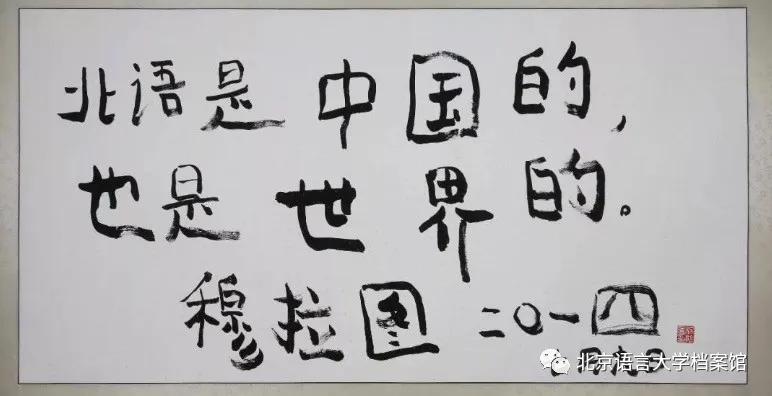 北语是中国的，
也是世界的。
穆拉图 二〇一四
北京语言大学档案馆